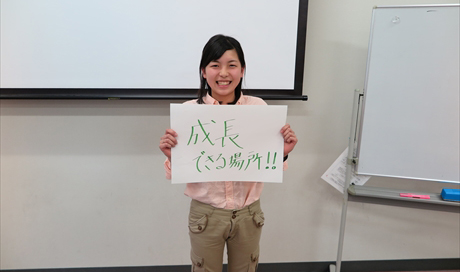 成長
できる場所!!